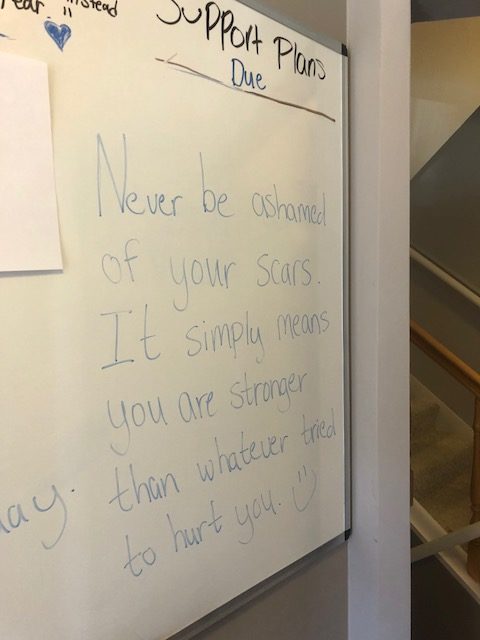 instead
Support Plans
Due
Never be ashamed
of your scars.
It simply means
you are stronger
than whatever tried
to hurt you. :)